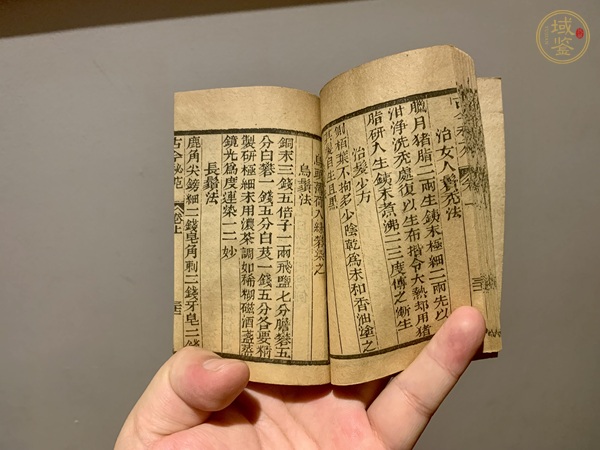 治女人鬢禿法
臘月猪脂二兩生鉄末極細二兩先以
泔淨洗禿處復以生布揩令大熱却用猪
脂研入生鉄末煮沸二三度傅之漸生
治髮少方
側柏葉不拘多少陰乾爲末和香油塗之
生且黑
入綠礬染之
烏鬚法
銅末三錢五倍子一兩飛鹽七分膽礬五
分白礬一錢五分白芨一錢五分各要精
製研極細末用濃茶調如稀糊磁酒盞蒸
鏡光爲度連染一二妙
長鬚法
鹿角尖鎊細二錢皂角刺二錢牙皂二錢
古今秘苑
卷上
域鉴